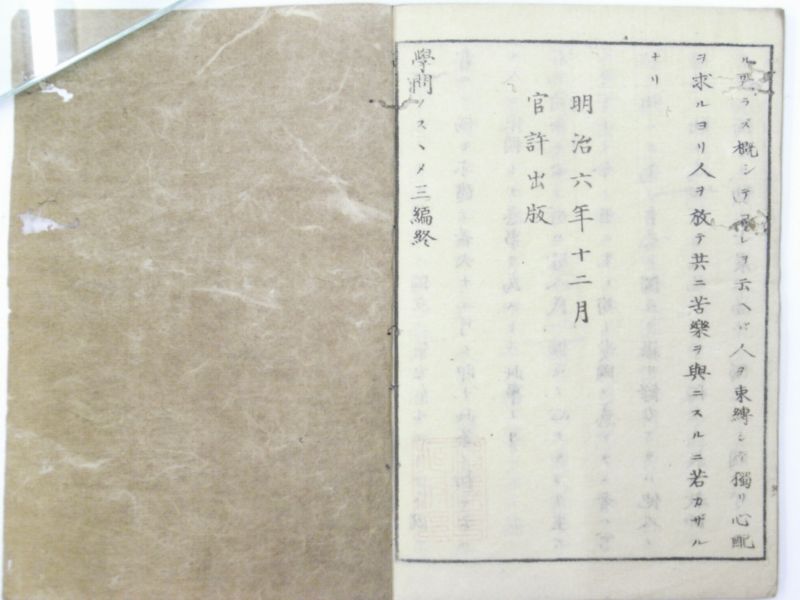 ルヲラズ概シテ之レヲ云ヘバ人ヲ束縛シテ獨リ心配
ヲ求ルヨリ人ヲ放テ共ニ苦樂ヲ與ニスルニ若カザル
ナリ
明治六年十二月
官許出版
學問ノスヽメ三編終